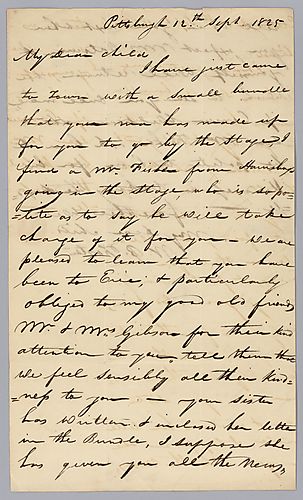 Pittsburgh 12th Sept. 1825
My Dear Child
I have just come
to Town with a small bundle
that your ma has made up
for you to go by the Stage, I
find a Mr. Fisher from Harrisbg
going in the Stage, who is so po-
=lite as to say he will take
charge of it for you - We are
pleased to learn that you have
been to Erie; & particularly
obliged to my good old friends
Mr. & Mrs Gibson for their kind
attention to you, tell them that
we feel sensibly all their kind-
=ness to you. - your Sister
has written & inclosed her letter
in the Bundle, I suppose she
has given you all the News,